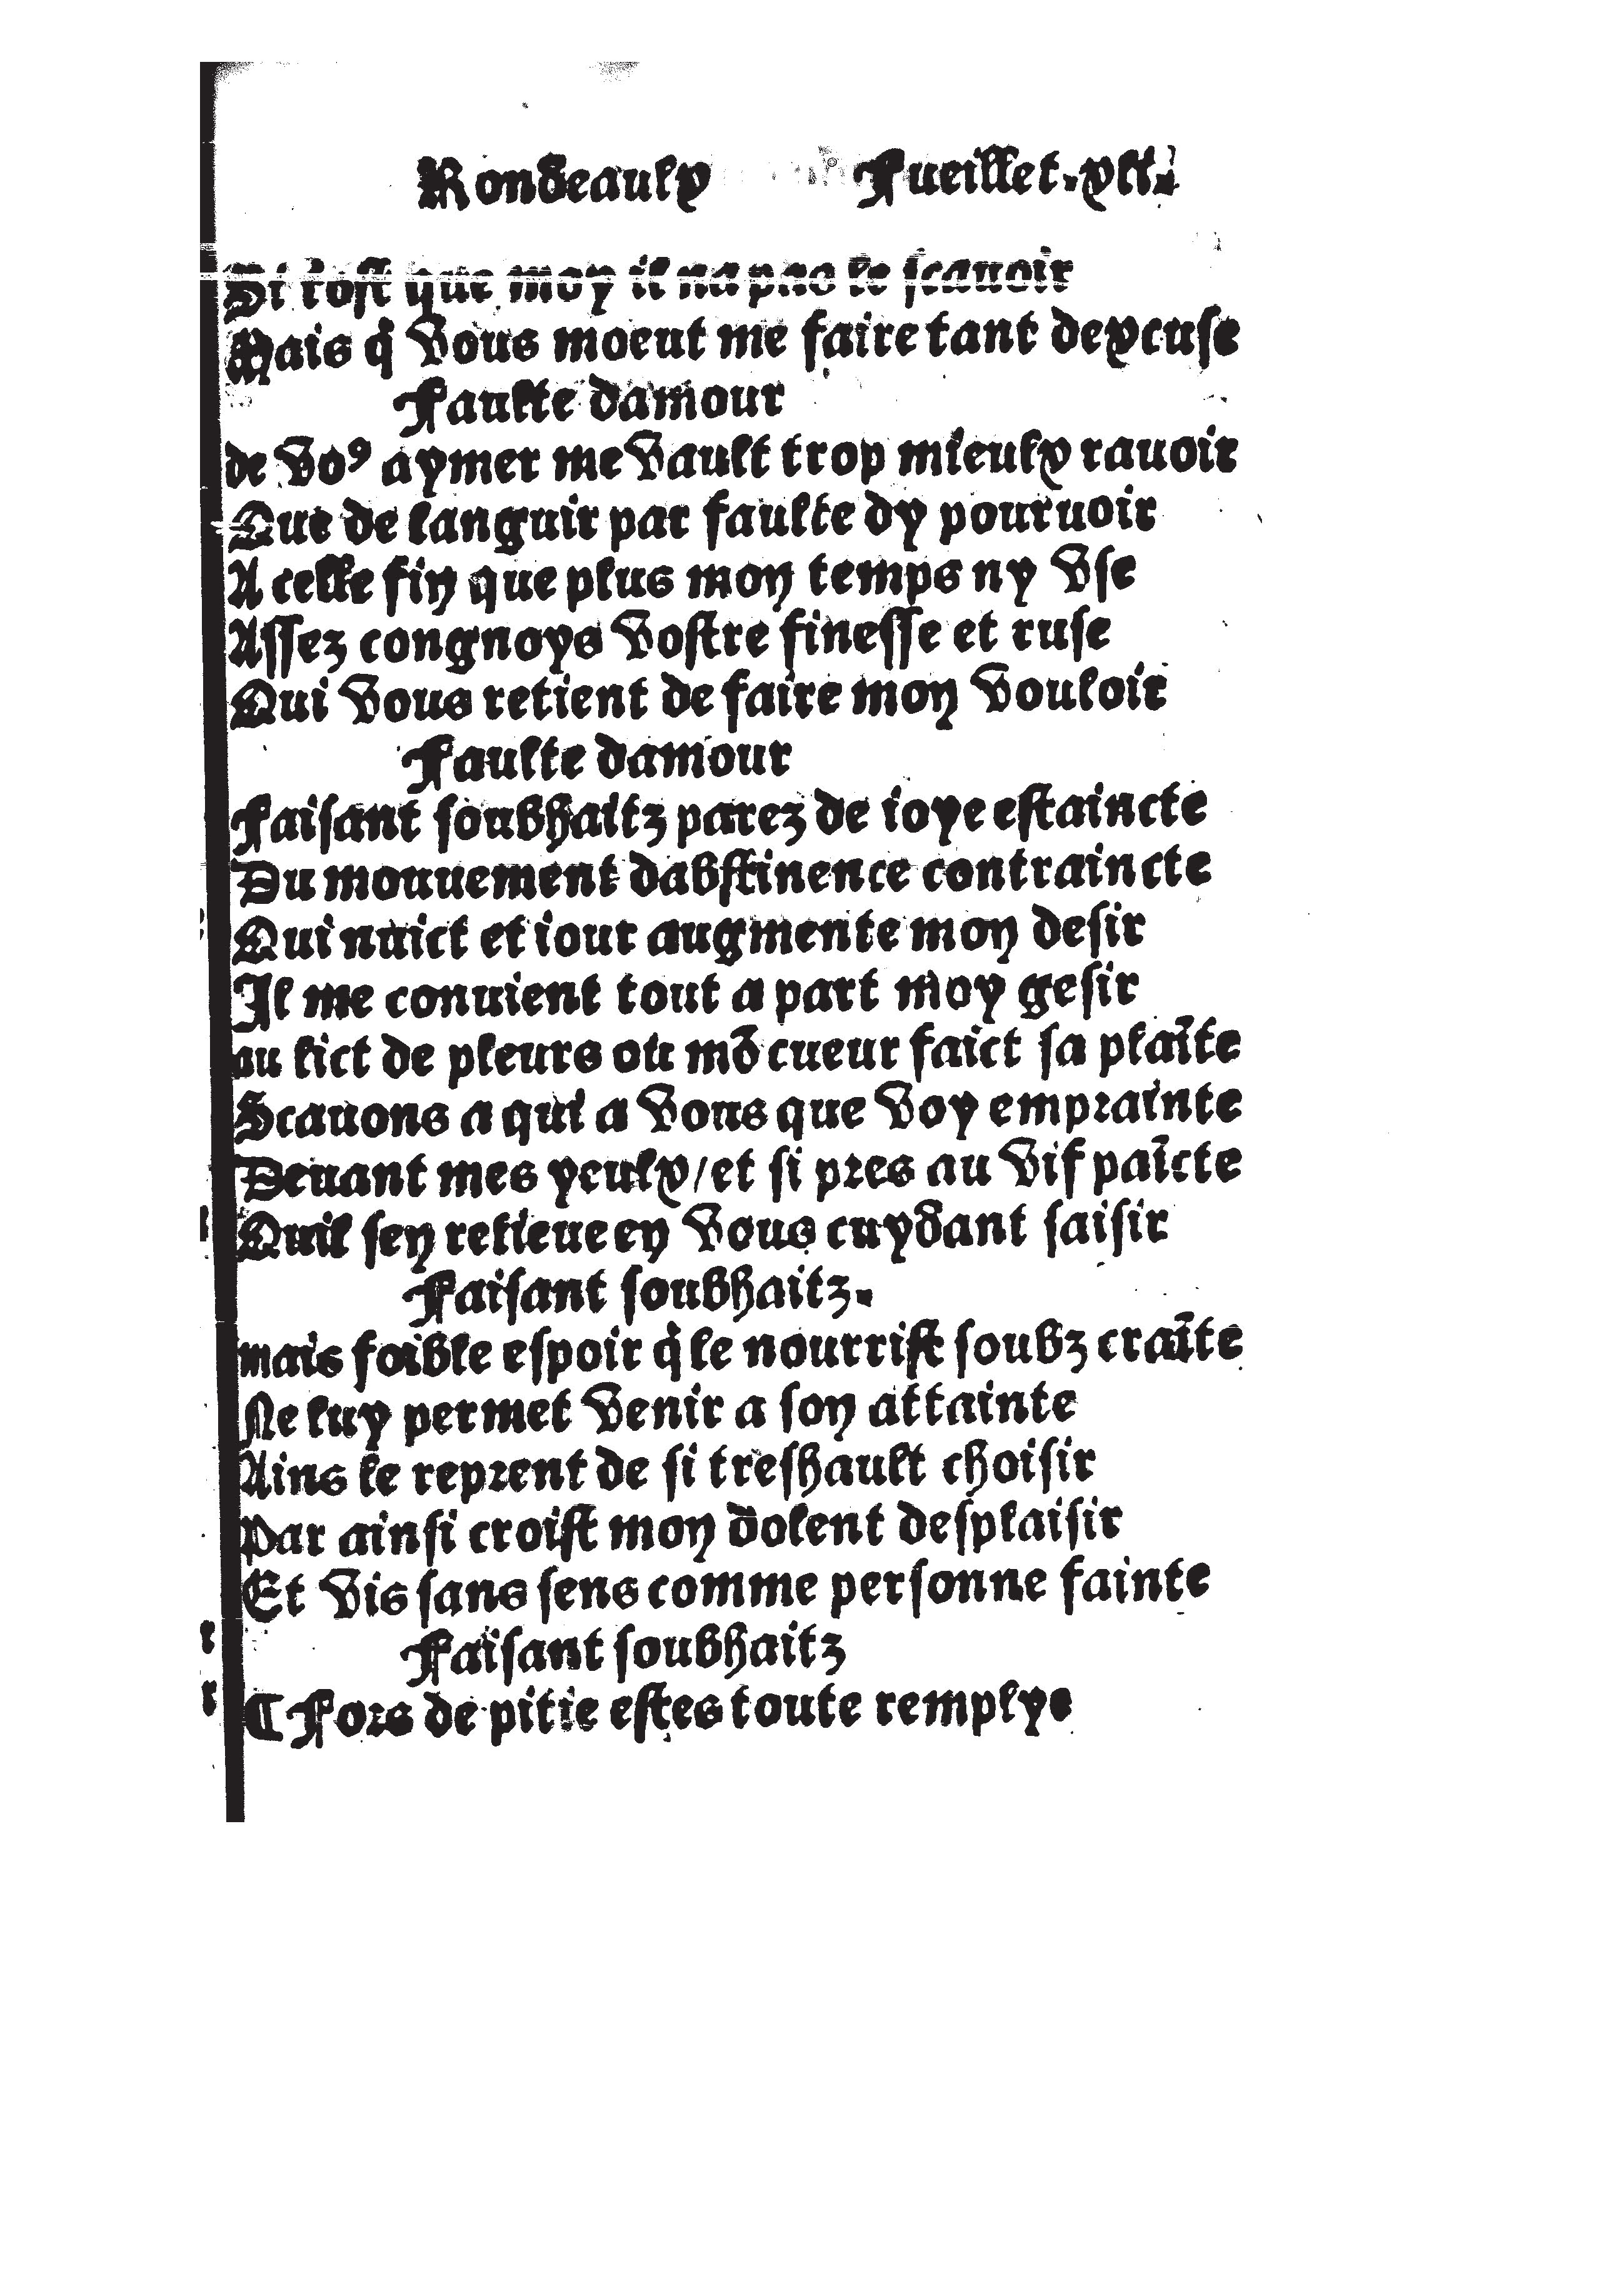 Rondeaulx Fueillet.xll.
Si tost que moy il na pas le scauoir
Mais q̇ vous moeut me faire tant dexcuse
Faulte damour
de voꝰ aymer me vault trop mieulx rauoir
Que de languir par faulte dy pouruoir
A celle fin que plus mon temps ny vse
Assez congnoys vostre finesse et ruse
Qui vous retient de faire mon vouloir
Faulte damour
Faisant soubhaitz parez de ioye estaincte
Du mouuement dabstinence contraincte
Qui nuict et iour augmente mon desir
Il me conuient tout a part moy gesir
au lict de pleurs ou mō cueur faict sa plaīte
Scauons a qui a vous que voy emprainte
Deuant mes yeulx/et si pres au vif paīcte
Quil sen relieue en vous cuydant saisir
Faisant soubhaitz.
mais foible espoir q̇ le nourrist soubz craīte
Ne luy permet venir a son attainte
Ains le reprent de si treshault choisir
Par ainsi croist mon dolent desplaisir
Et vis sans sens comme personne fainte
Faisant soubhaitz
¶ Fors de pitie estes toute remplye